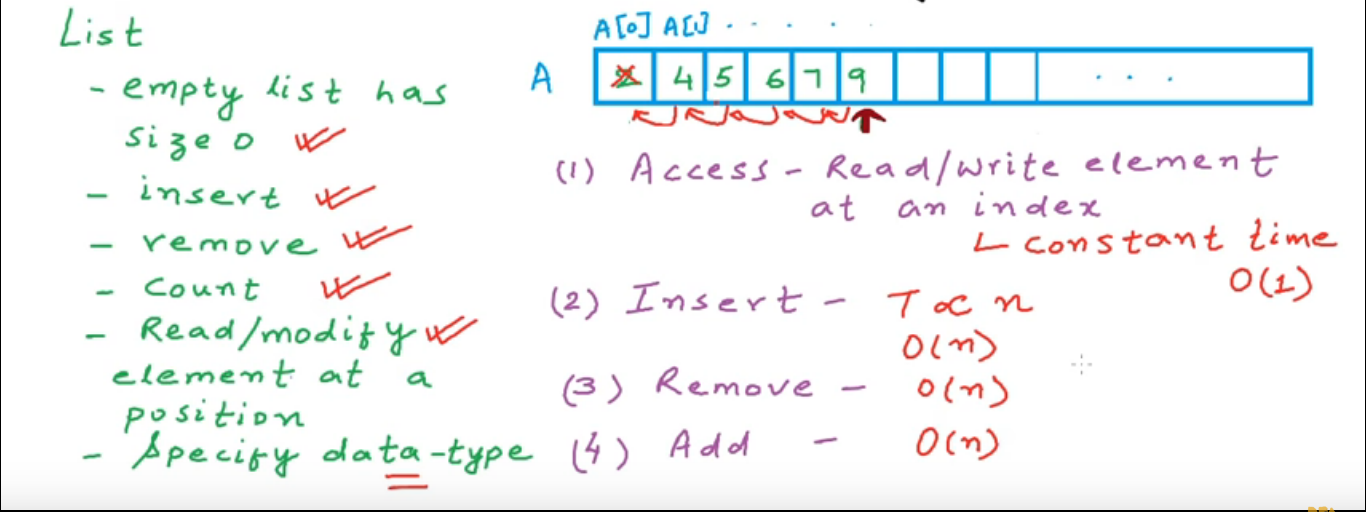 List
- empty list has
size 0
- insert
- remove
- count
- Read/modify
element at a
position
- Specify data-type
A[0] A[1] . . . . .
A 4 5 6 7 9 . . .
(1) Access - Read/write element
at an index
constant time
O(1)
(2) Insert - T ∝ n
O(n)
(3) Remove - O(n)
(4) Add - O(n)